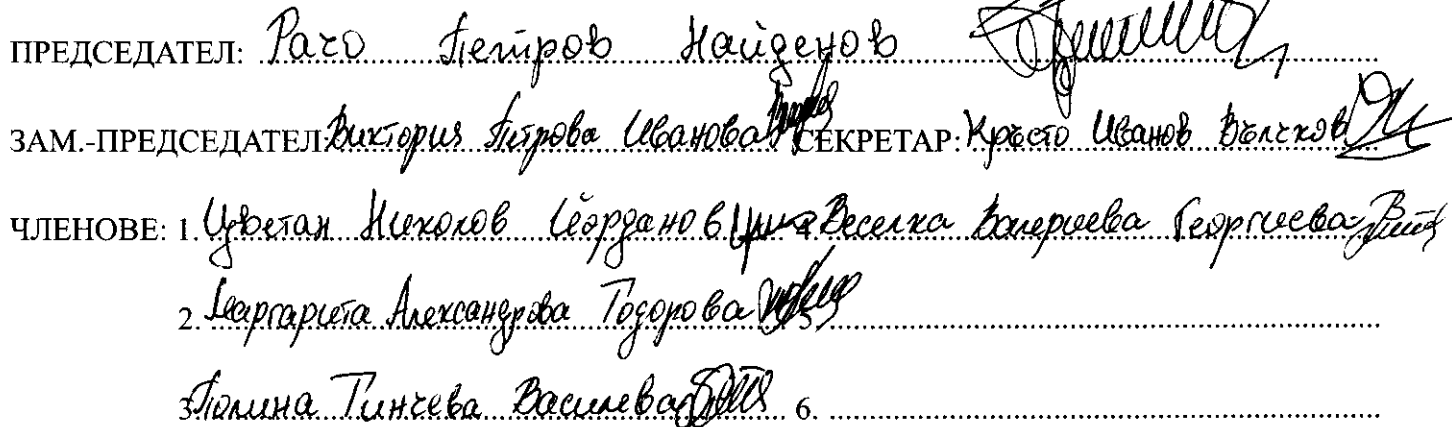 ПРЕДСЕДАТЕЛ: Рачо Петров Найденов
ЗАМ.-ПРЕДСЕДАТЕЛ: Виктория Петрова Иванова СЕКРЕТАР: Кръсто Иванов Вълчков
ЧЛЕНОВЕ: 1. Цветан Николов Йорданов 4. Веселка Валериева Георгиева
2. Маргарита Александрова Тодорова 5.
3. Полина Тинчева Василева 6.